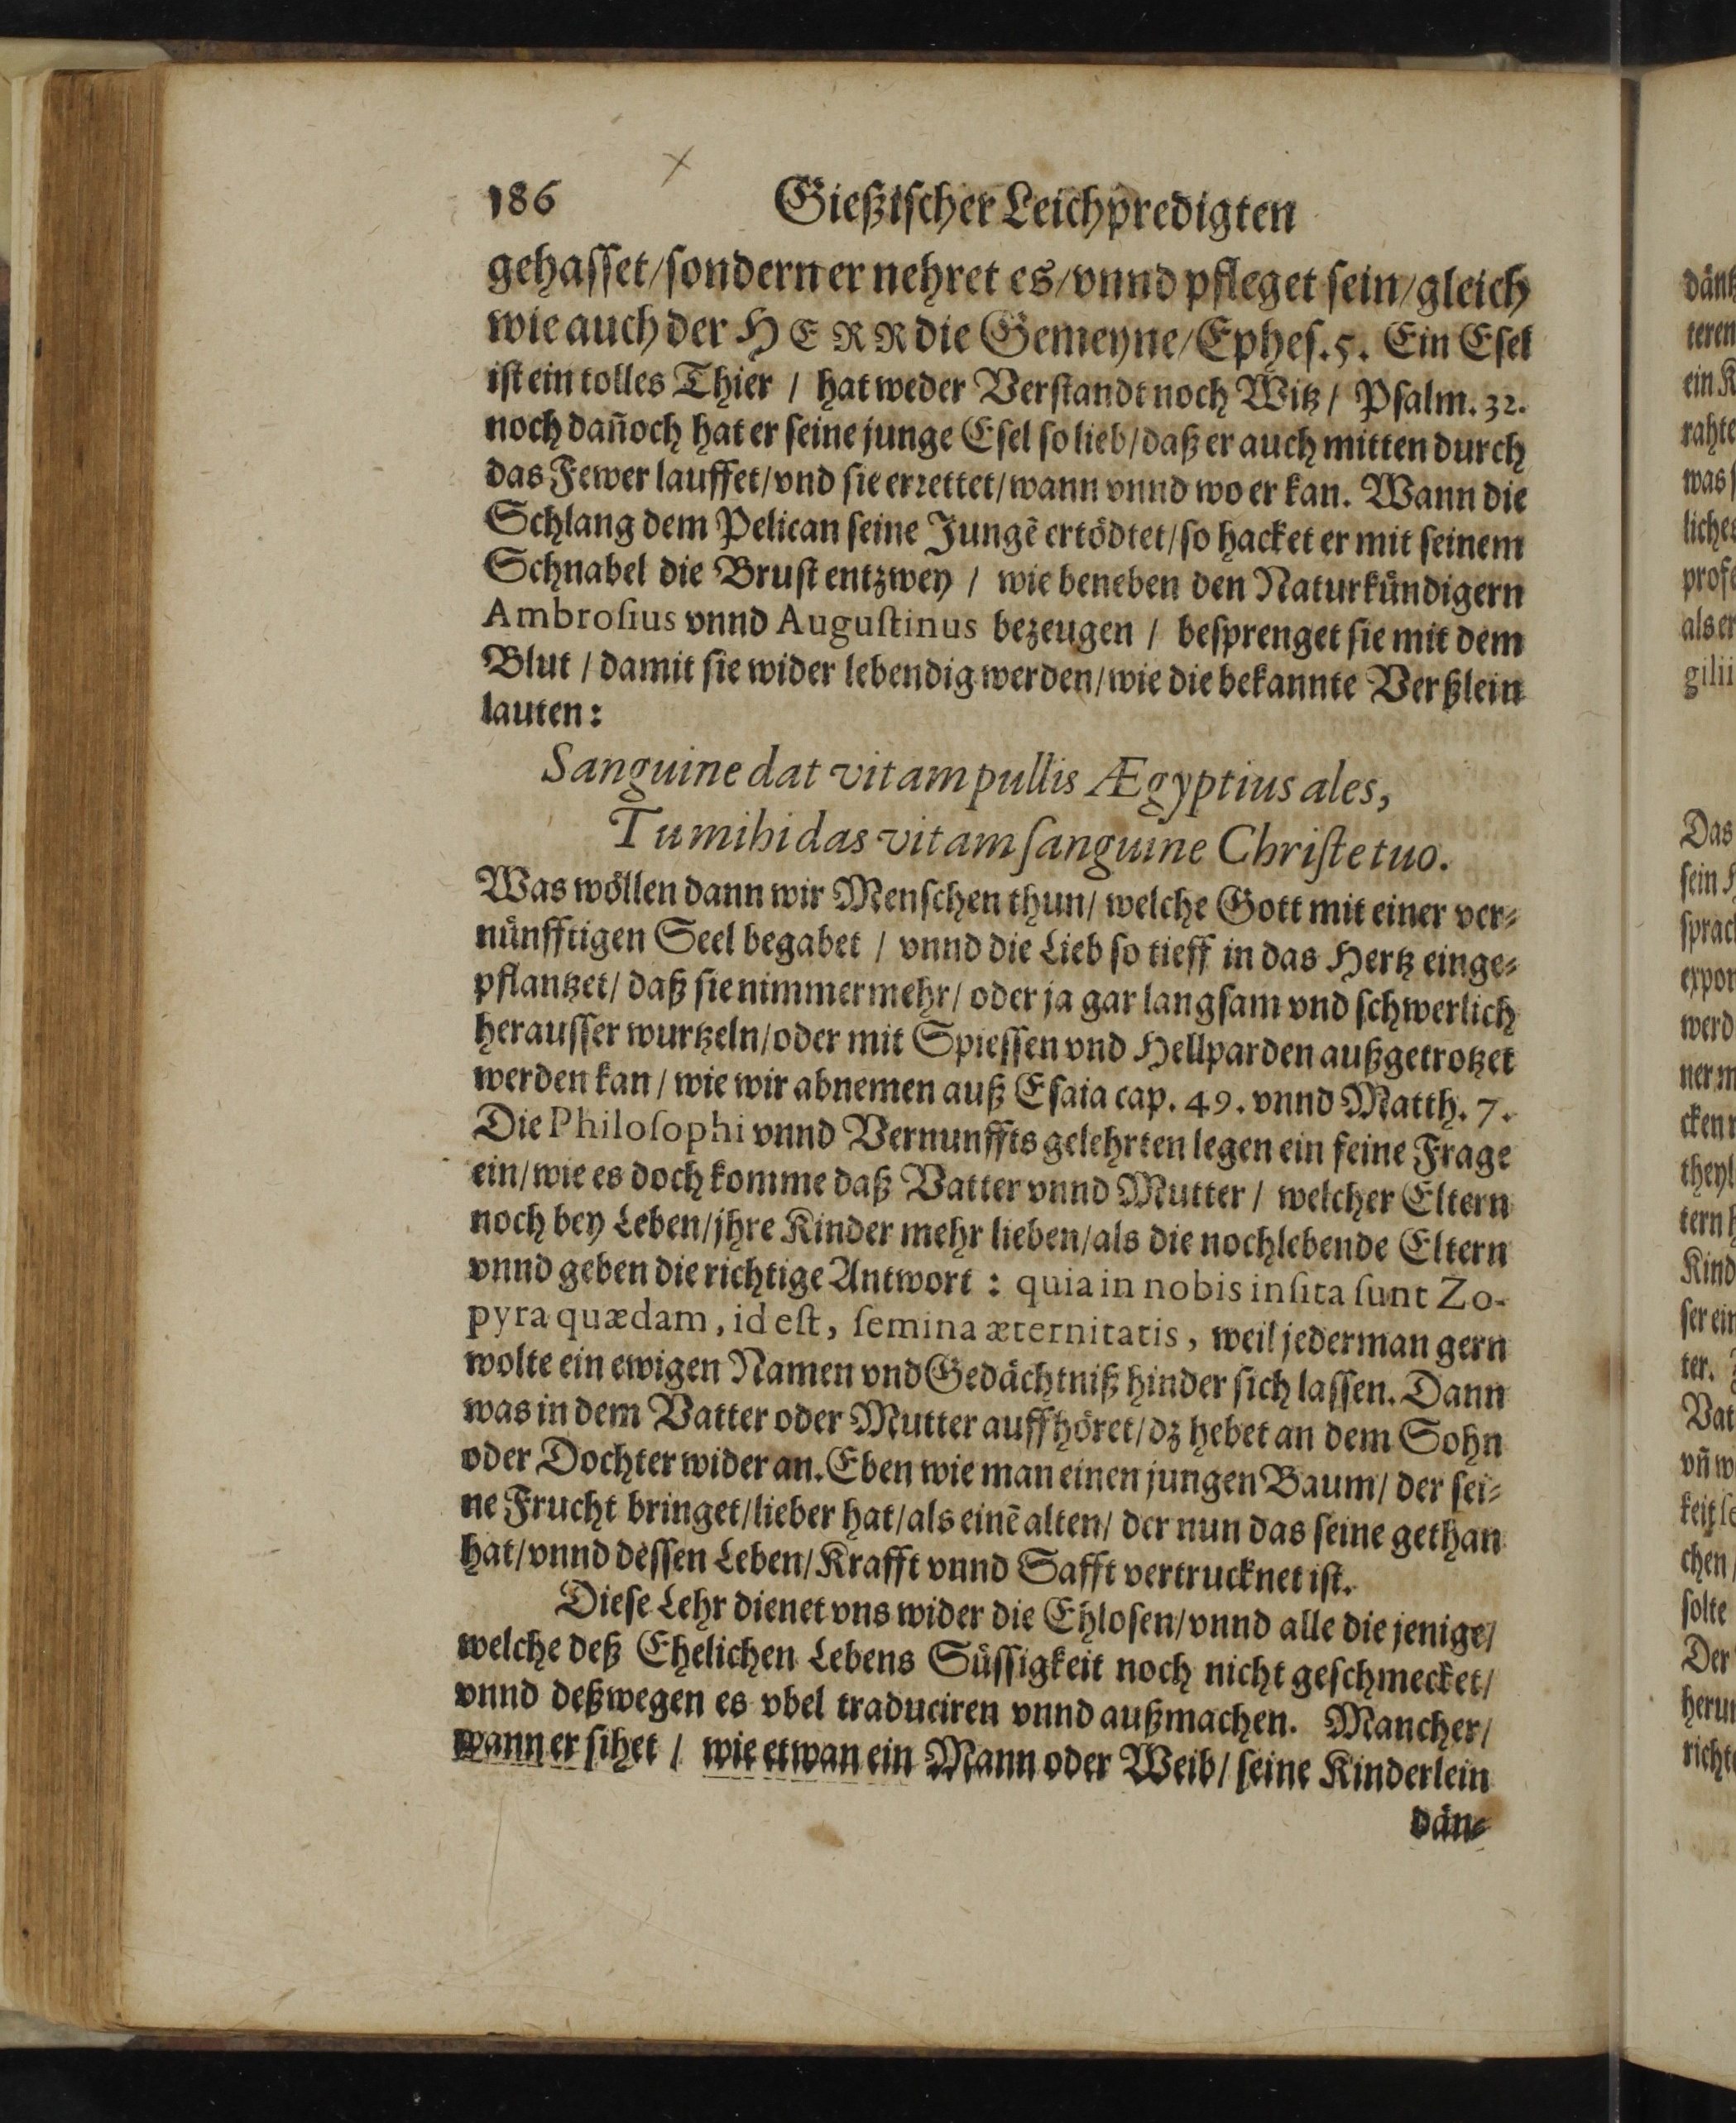 186 Gießischer Leichpredigten
gehasset/sondern er nehret es/vnnd pfleget sein/gleich
wie auch der HERR die Gemeyne/Ephes.5. Ein Esel
ist ein tolles Thier / hat weder Verstandt noch Witz / Psalm.32.
noch dañoch hat er seine junge Esel so lieb/daß er auch mitten durch
das Fewer lauffet/vnd sie errettet/wann vnnd wo er kan. Wann die
Schlang dem Pelican seine Jungẽ ertödtet/so hacket er mit seinem
Schnabel die Brust entzwey / wie beneben den Naturkündigern
Ambrosius vnnd Augustinus bezeugen / besprenget sie mit dem
Blut / damit sie wider lebendig werden/wie die bekannte Verßlein
lauten:
Sanguine dat vitam pullis Ægyptius ales,
Tu mihi das vitam sanguine Christe tuo.
Was wöllen dann wir Menschen thun/ welche Gott mit einer ver-
nünfftigen Seel begabet / vnnd die Lieb so tieff in das Hertz einge-
pflantzet/ daß sie nimmermehr/ oder ja gar langsam vnd schwerlich
herausser wurtzeln/oder mit Spiessen vnd Hellparden außgetrotzet
werden kan / wie wir abnemen auß Esaia cap. 49. vnnd Matth. 7.
Die Philosophi vnnd Vernunffts gelehrten legen ein feine Frage
ein/wie es doch komme daß Vatter vnnd Mutter / welcher Eltern
noch bey Leben/jhre Kinder mehr lieben/als die nochlebende Eltern
vnnd geben die richtige Antwort : quia in nobis insita sunt Zo-
pyra quædam, id est, semina æternitatis, weil jederman gern
wolte ein ewigen Namen vnd Gedächtniß hinder sich lassen. Dann
was in dem Vatter oder Mutter auffhöret/dz hebet an dem Sohn
oder Dochter wider an. Eben wie man einen jungen Baum/ der sei-
ne Frucht bringet/lieber hat/als einẽ alten/ der nun das seine gethan
hat/vnnd dessen Leben/Krafft vnnd Safft vertrucknet ist.
Diese Lehr dienet vns wider die Ehlosen/vnnd alle die jenige/
welche deß Ehelichen Lebens Süssigkeit noch nicht geschmecket/
vnnd deßwegen es vbel traduciren vnnd außmachen. Mancher/
wann er sihet / wie etwan ein Mann oder Weib/ seine Kinderlein
dän-